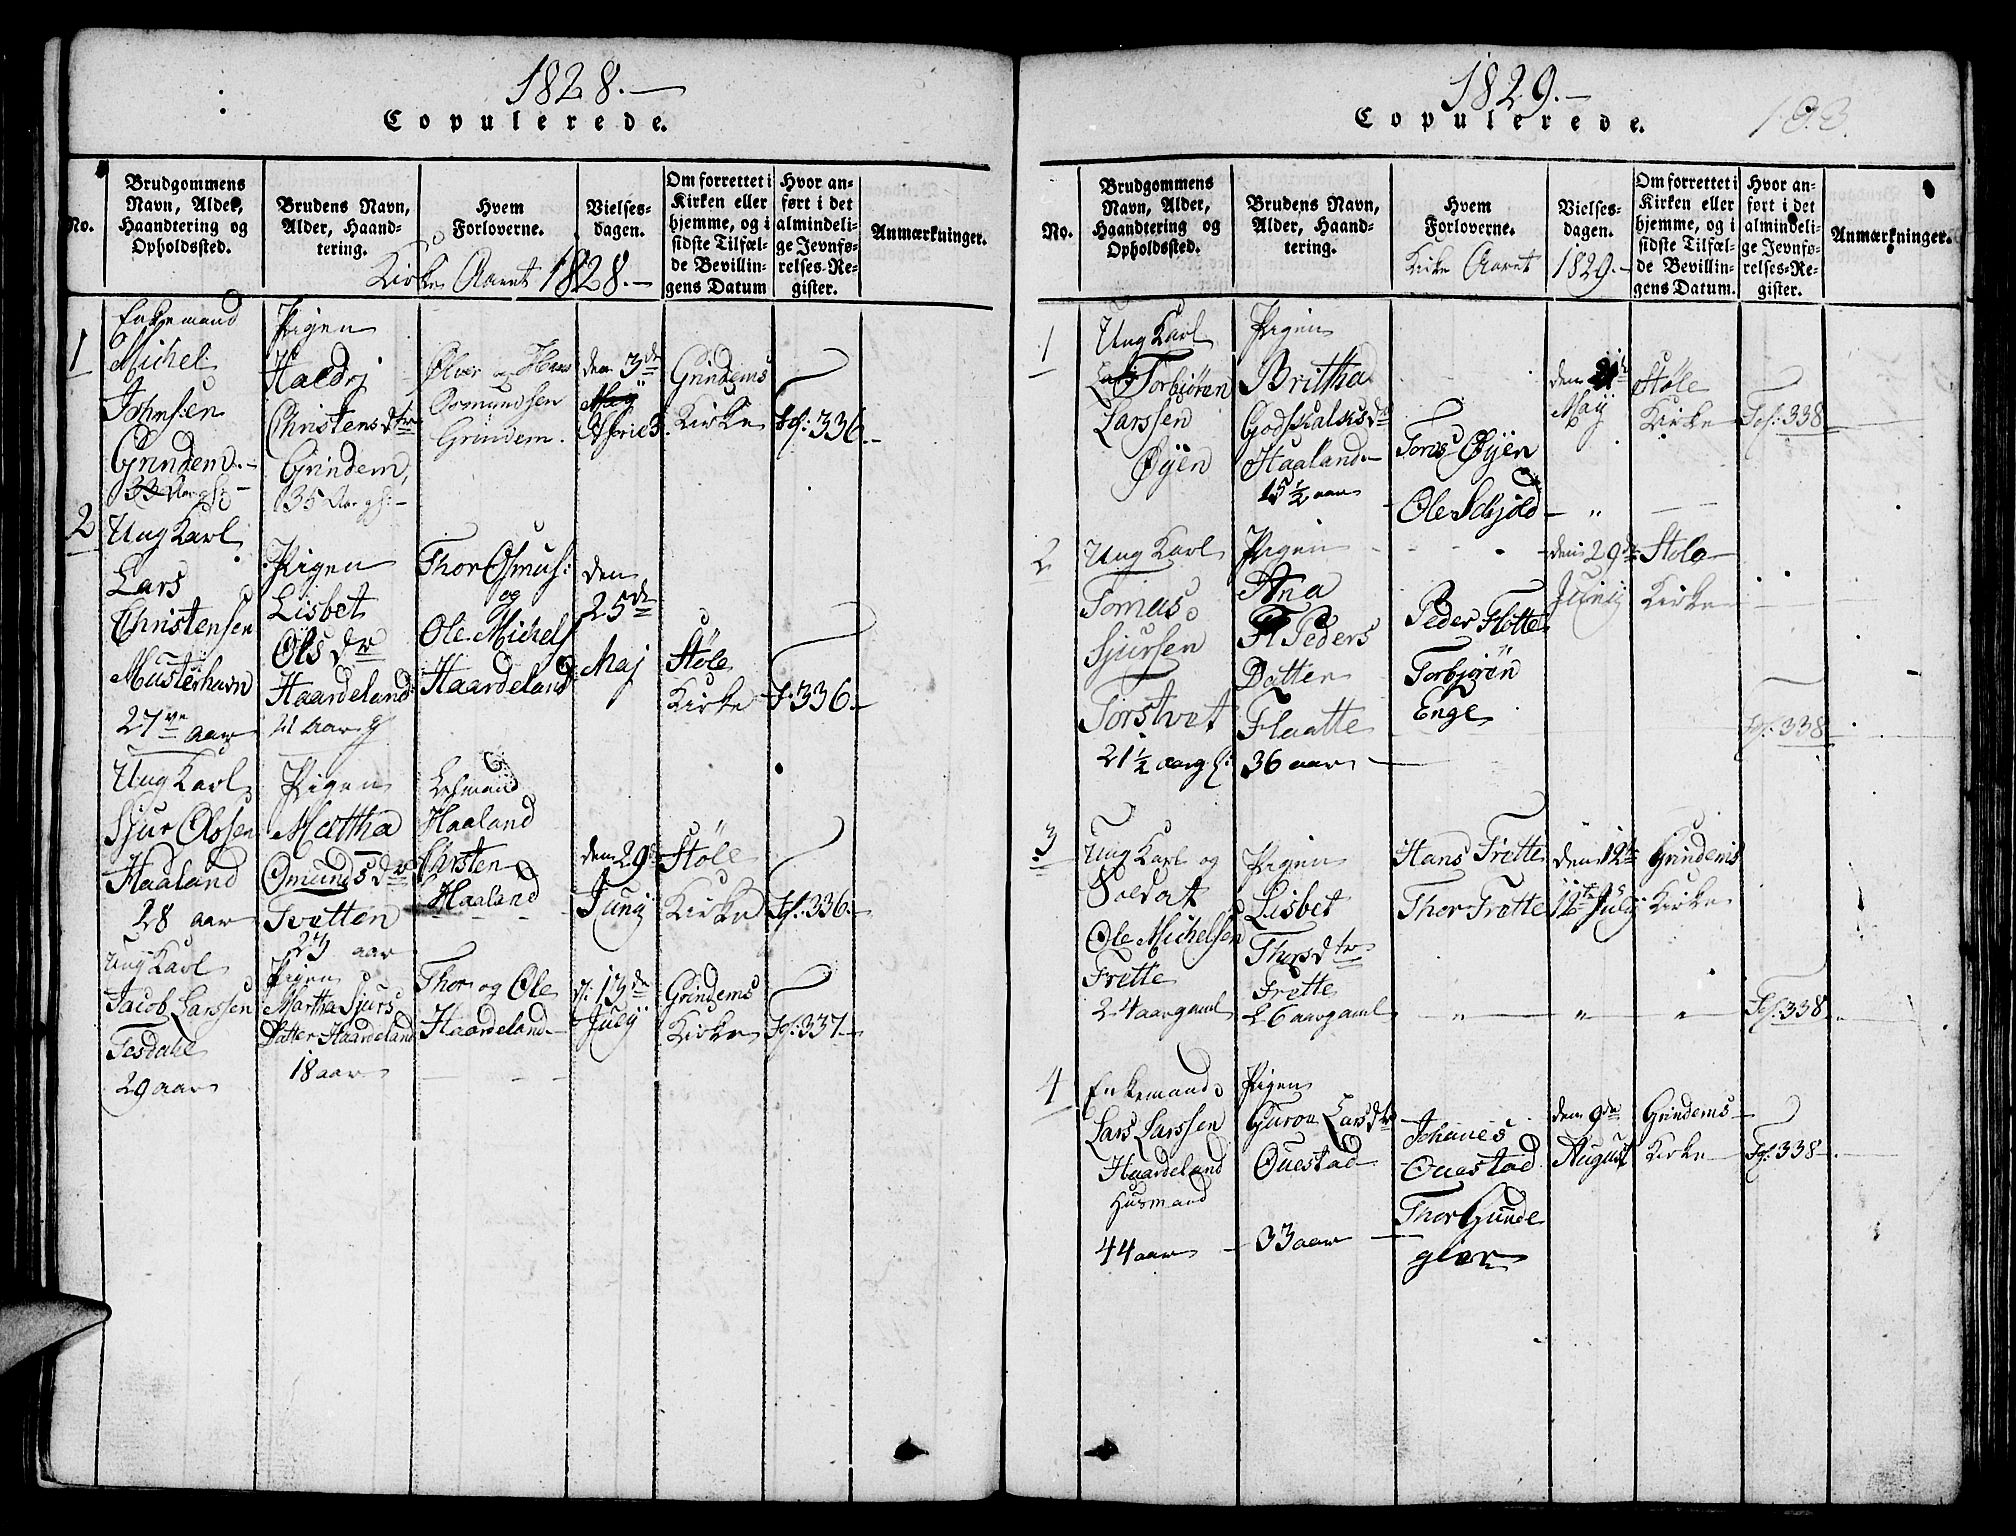 1828.—
Copulerede.
No.
Brudgommens
Navn, Alder,
Haandtering og
Opholdssted.
Brudens Navn,
Alder, Haand-
tering.
Hvem
Forloverne.
Vielses-
dagen.
Om forrettet i
Kirken eller
hjemme, og i
sidste Tilfæl-
de Bevillin-
gens Datum
Hvor an-
ført i det
almindeli-
ge Jevnfø-
relses-Re-
gister.
Anmærkninger.
Kirke Aaret 1828.—
1
Enkemand
Michel
Johnsen
Grindem.—
33 Aar gl:—
Pigen
Christens dtr
Grindem,
35 Aar gl:—
Ølver og Hans
Osmundsen
Grindem.
den 3de
April 3.
Grindems
Kirke
Fol: 336.—
2
Ung Karl
Lars
Christensen
Musterhavn
27ve aar
Pigen
Lisbet
Ols dtr
Haardeland
21 Aar g
Thor Osmus:
og
Ole Michels
Haardeland
den
25de
Maj
Støle
Kirke
F: 336.—
Ung Karl
Sjur Olssen
Haaland
28 aar
Pigen
Martha
Omunds dtr
Tvetten
23 aar
Haaland
Haaland
den 29
Junij
Støle
Kirke
Fol: 336.—
Ung Karl
Jacob Larssen
Tesdahl
29 aar
Pigen
Martha Sjurs
Datter Haardeland
18 aar
Thor og Ole
Haardeland—
d: 13de
Julij
Grindems
Kirke
Fol: 337—
1829.—
Copulerede.
183.
No.
Brudgommens
Navn, Alder,
Haandtering og
Opholdssted.
Brudens Navn,
Alder, Haand-
tering.
Hvem
Forloverne.
Vielses-
dagen.
Om forrettet i
Kirken eller
hjemme, og i
sidste Tilfæl-
de Bevillin-
gens Datum.
Hvor an-
ført i det
almindeli-
ge Jevnfø-
relses-Re-
gister.
Anmærkninger.
Kirke Aaret 1829.—
1
Ung Karl
Torbjøren
Larssen
Øyen
Pigen
Britha
Godskalksdr
Haaland—
15 ½ aar
Tores Øyen
Ole Schjold
den
Maij
Støle
Kirke
Fol: 338.
2
Ung Karl
Tomas
Sjursen
Torstvet
21 ½ aar gl:
Pigen
Ana
Peders
Datter
Flaatte
36 aar
Peder Flotte
Torbjørön
Enge
den 29de
Junij
Støle
Kirke
Fol: 338
3
Ung Karl og
Soldat
Ole Michelsen
Frette
24 aar gaml
Pigen
Lisbet
Thors dtr
Frette
26 aar gaml
Hans Frette
Thor Frette
den 12te
12te Julij
Grindems
Kirke
Fol: 338
4
Enkemand
Lars Larssen
Haardeland
Husmand
44 aar
Pigen
Guroe Lars dtr
Ouestad
33 aar
Johanes
Ouestad
Thor Gunde
gier
den 9de
August
Grindems
Kirke
Fol: 338—